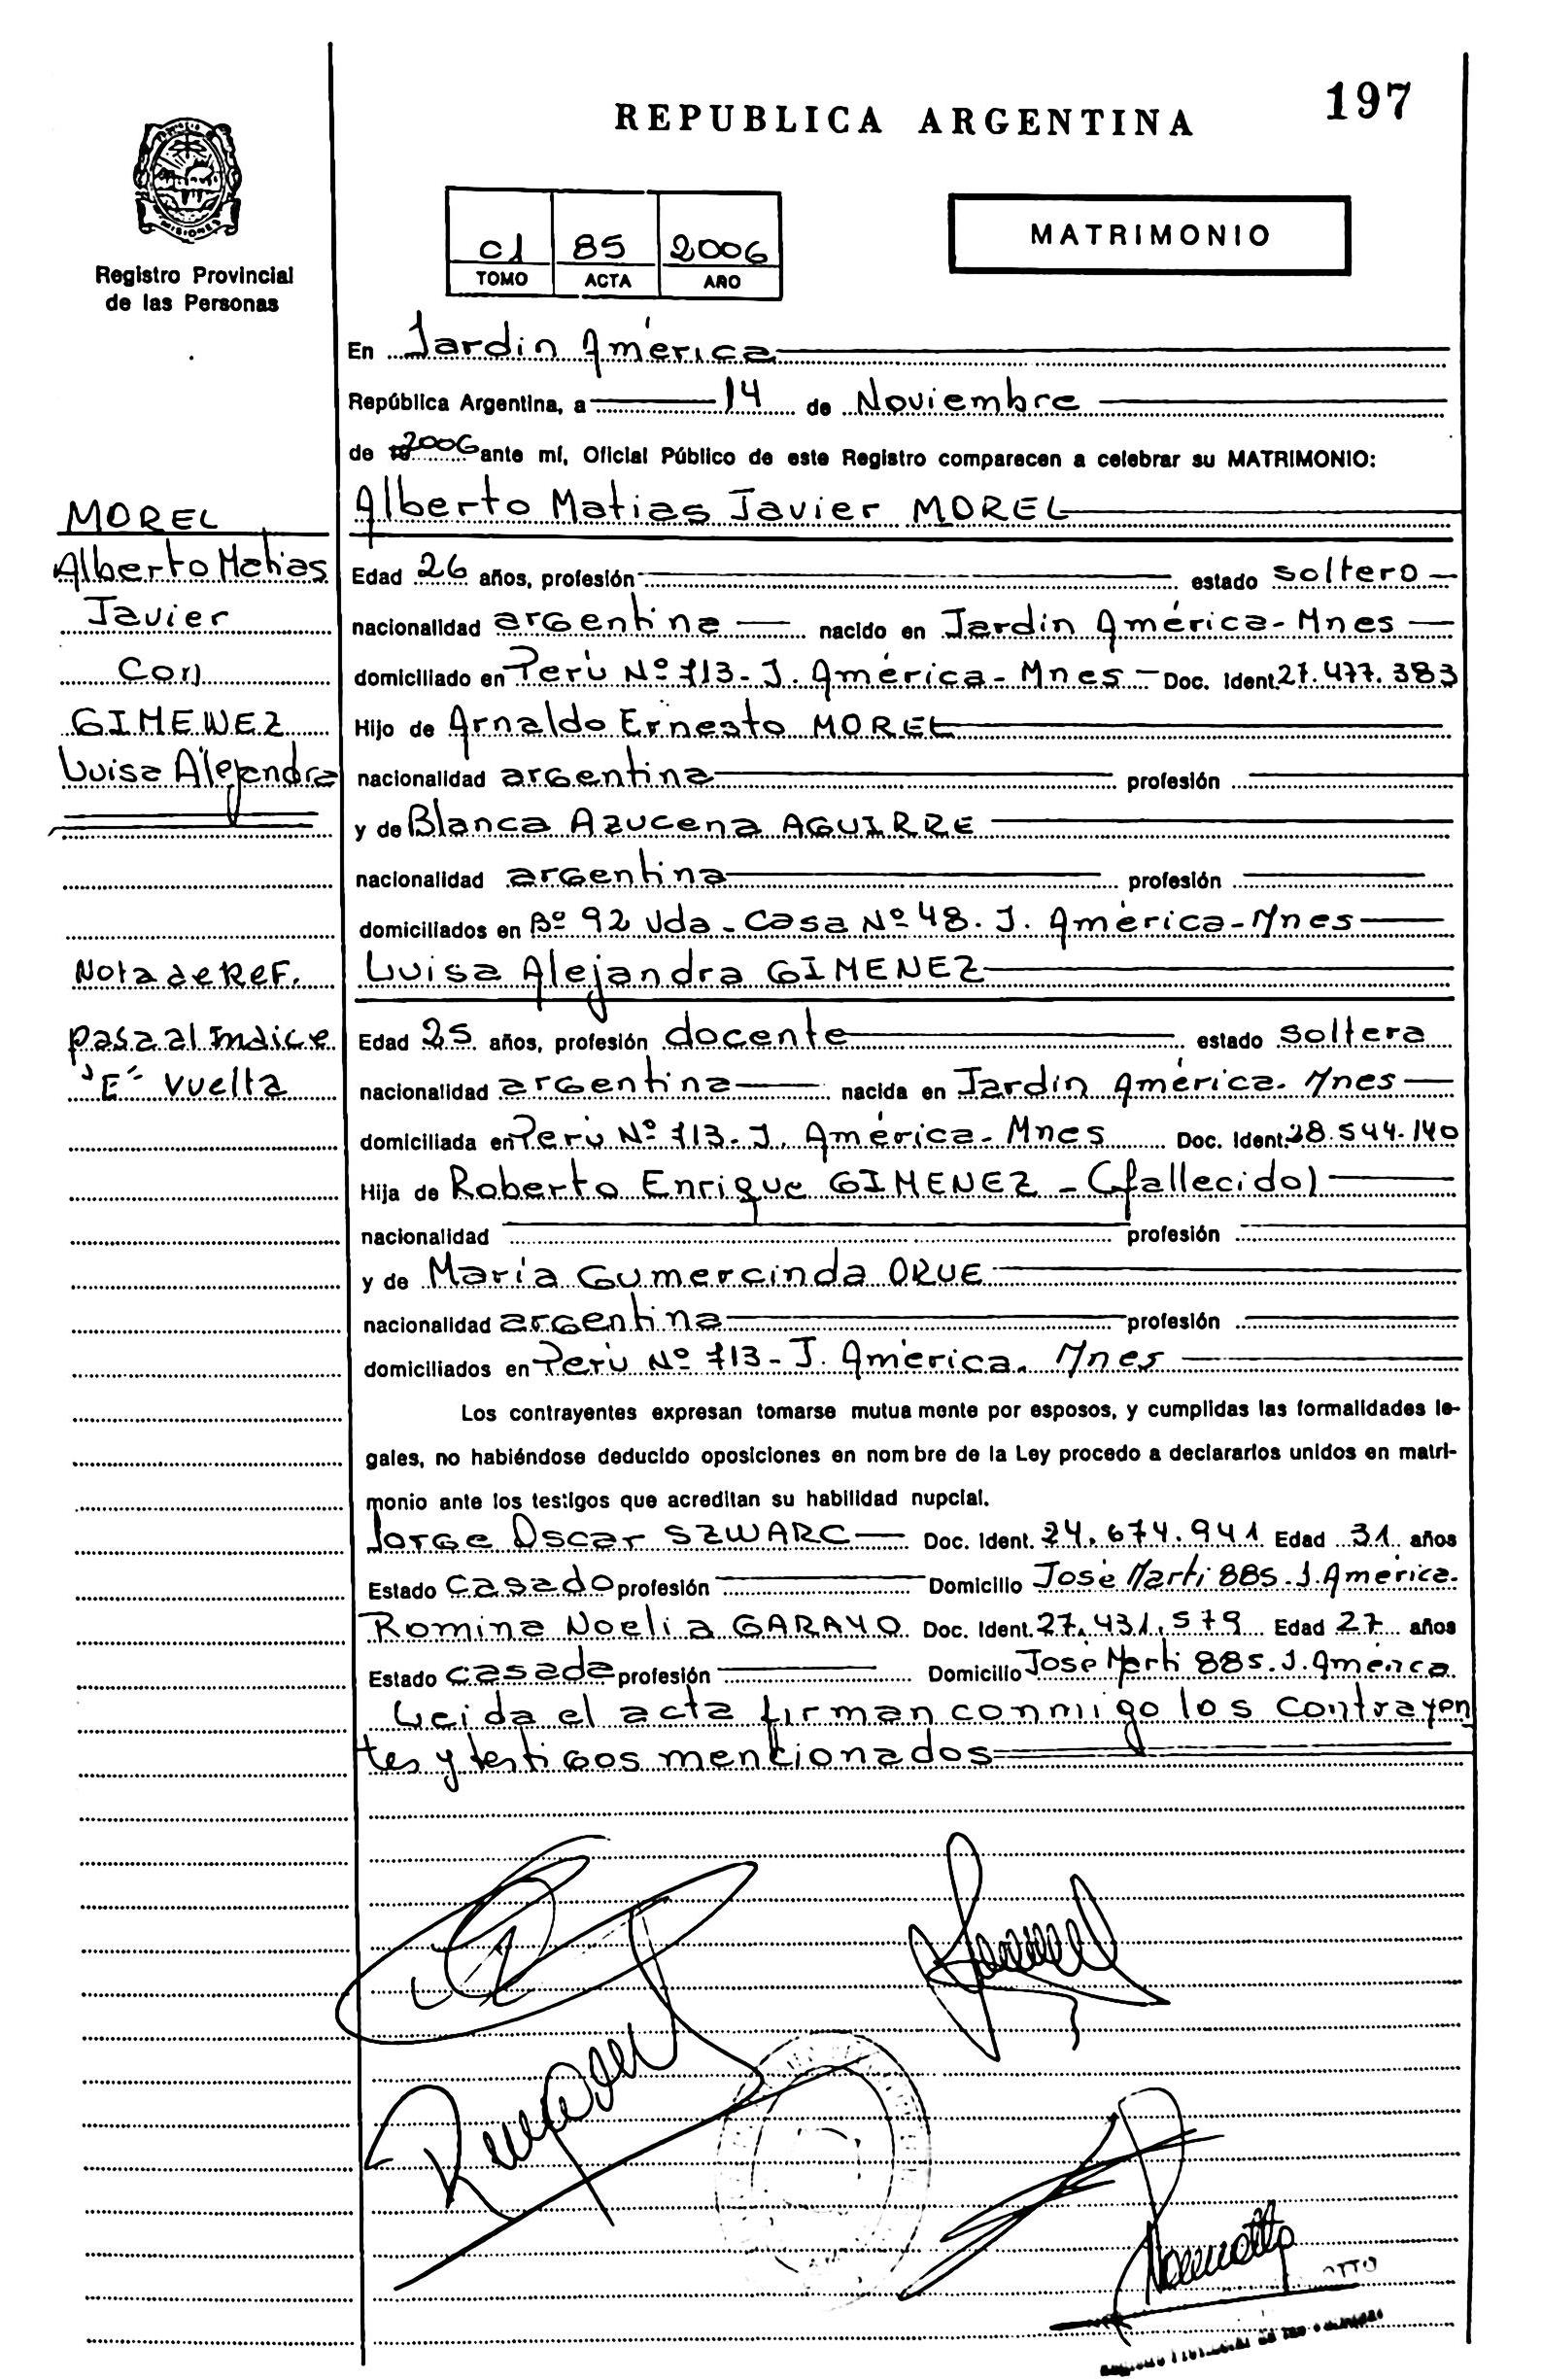 197
REPUBLICA ARGENTINA
MISIONES
Registro Provincial
de las Personas
01 85 2006
TOMO ACTA AÑO
MATRIMONIO
En Jardin América
República Argentina, a 14 de Noviembre
de 2006 ante mí, Oficial Público de este Registro comparecen a celebrar su MATRIMONIO:
Alberto Matias Javier MOREL
Edad 26 años, profesión estado soltero
nacionalidad argentina nacido en Jardin América-Mnes
domiciliado en Perú Nº 713-J. América-Mnes Doc. Ident. 27.477.383
Hijo de Arnaldo Ernesto MOREL
nacionalidad argentina profesión
y de Blanca Azucena AGUIRRE
nacionalidad argentina profesión
domiciliados en Bº 92 Vda-Casa Nº 48. J. América-Mnes
Luisa Alejandra GIMENEZ
Edad 25 años, profesión docente estado soltera
nacionalidad argentina nacida en Jardin América. Mnes
domiciliada en Perú Nº 713-J. América-Mnes Doc. Ident. 28.544.140
Hija de Roberto Enrique GIMENEZ-(fallecido)
nacionalidad profesión
y de María Gumercinda ORUE
nacionalidad argentina profesión
domiciliados en Perú Nº 713-J. América. Mnes
Los contrayentes expresan tomarse mutua mente por esposos, y cumplidas las formalidades le-
gales, no habiéndose deducido oposiciones en nom bre de la Ley procedo a declararlos unidos en matri-
monio ante los testigos que acreditan su habilidad nupcial.
Jorge Oscar SZWARC Doc. Ident. 24.674.941 Edad 31 años
Estado casado profesión Domicilio José Marti 885. J. América.
Romina Noelia GARAYO Doc. Ident. 27.431.579 Edad 27 años
Estado casada profesión Domicilio José Marti 885. J. América
Leida el acta firman conmigo los contrayen
tes y testigos mencionados
MOREL
Alberto Matias
Javier
Con
GIMENEZ
Luisa Alejandra
Nota de REF.
pasa al Indice
"E" vuelta